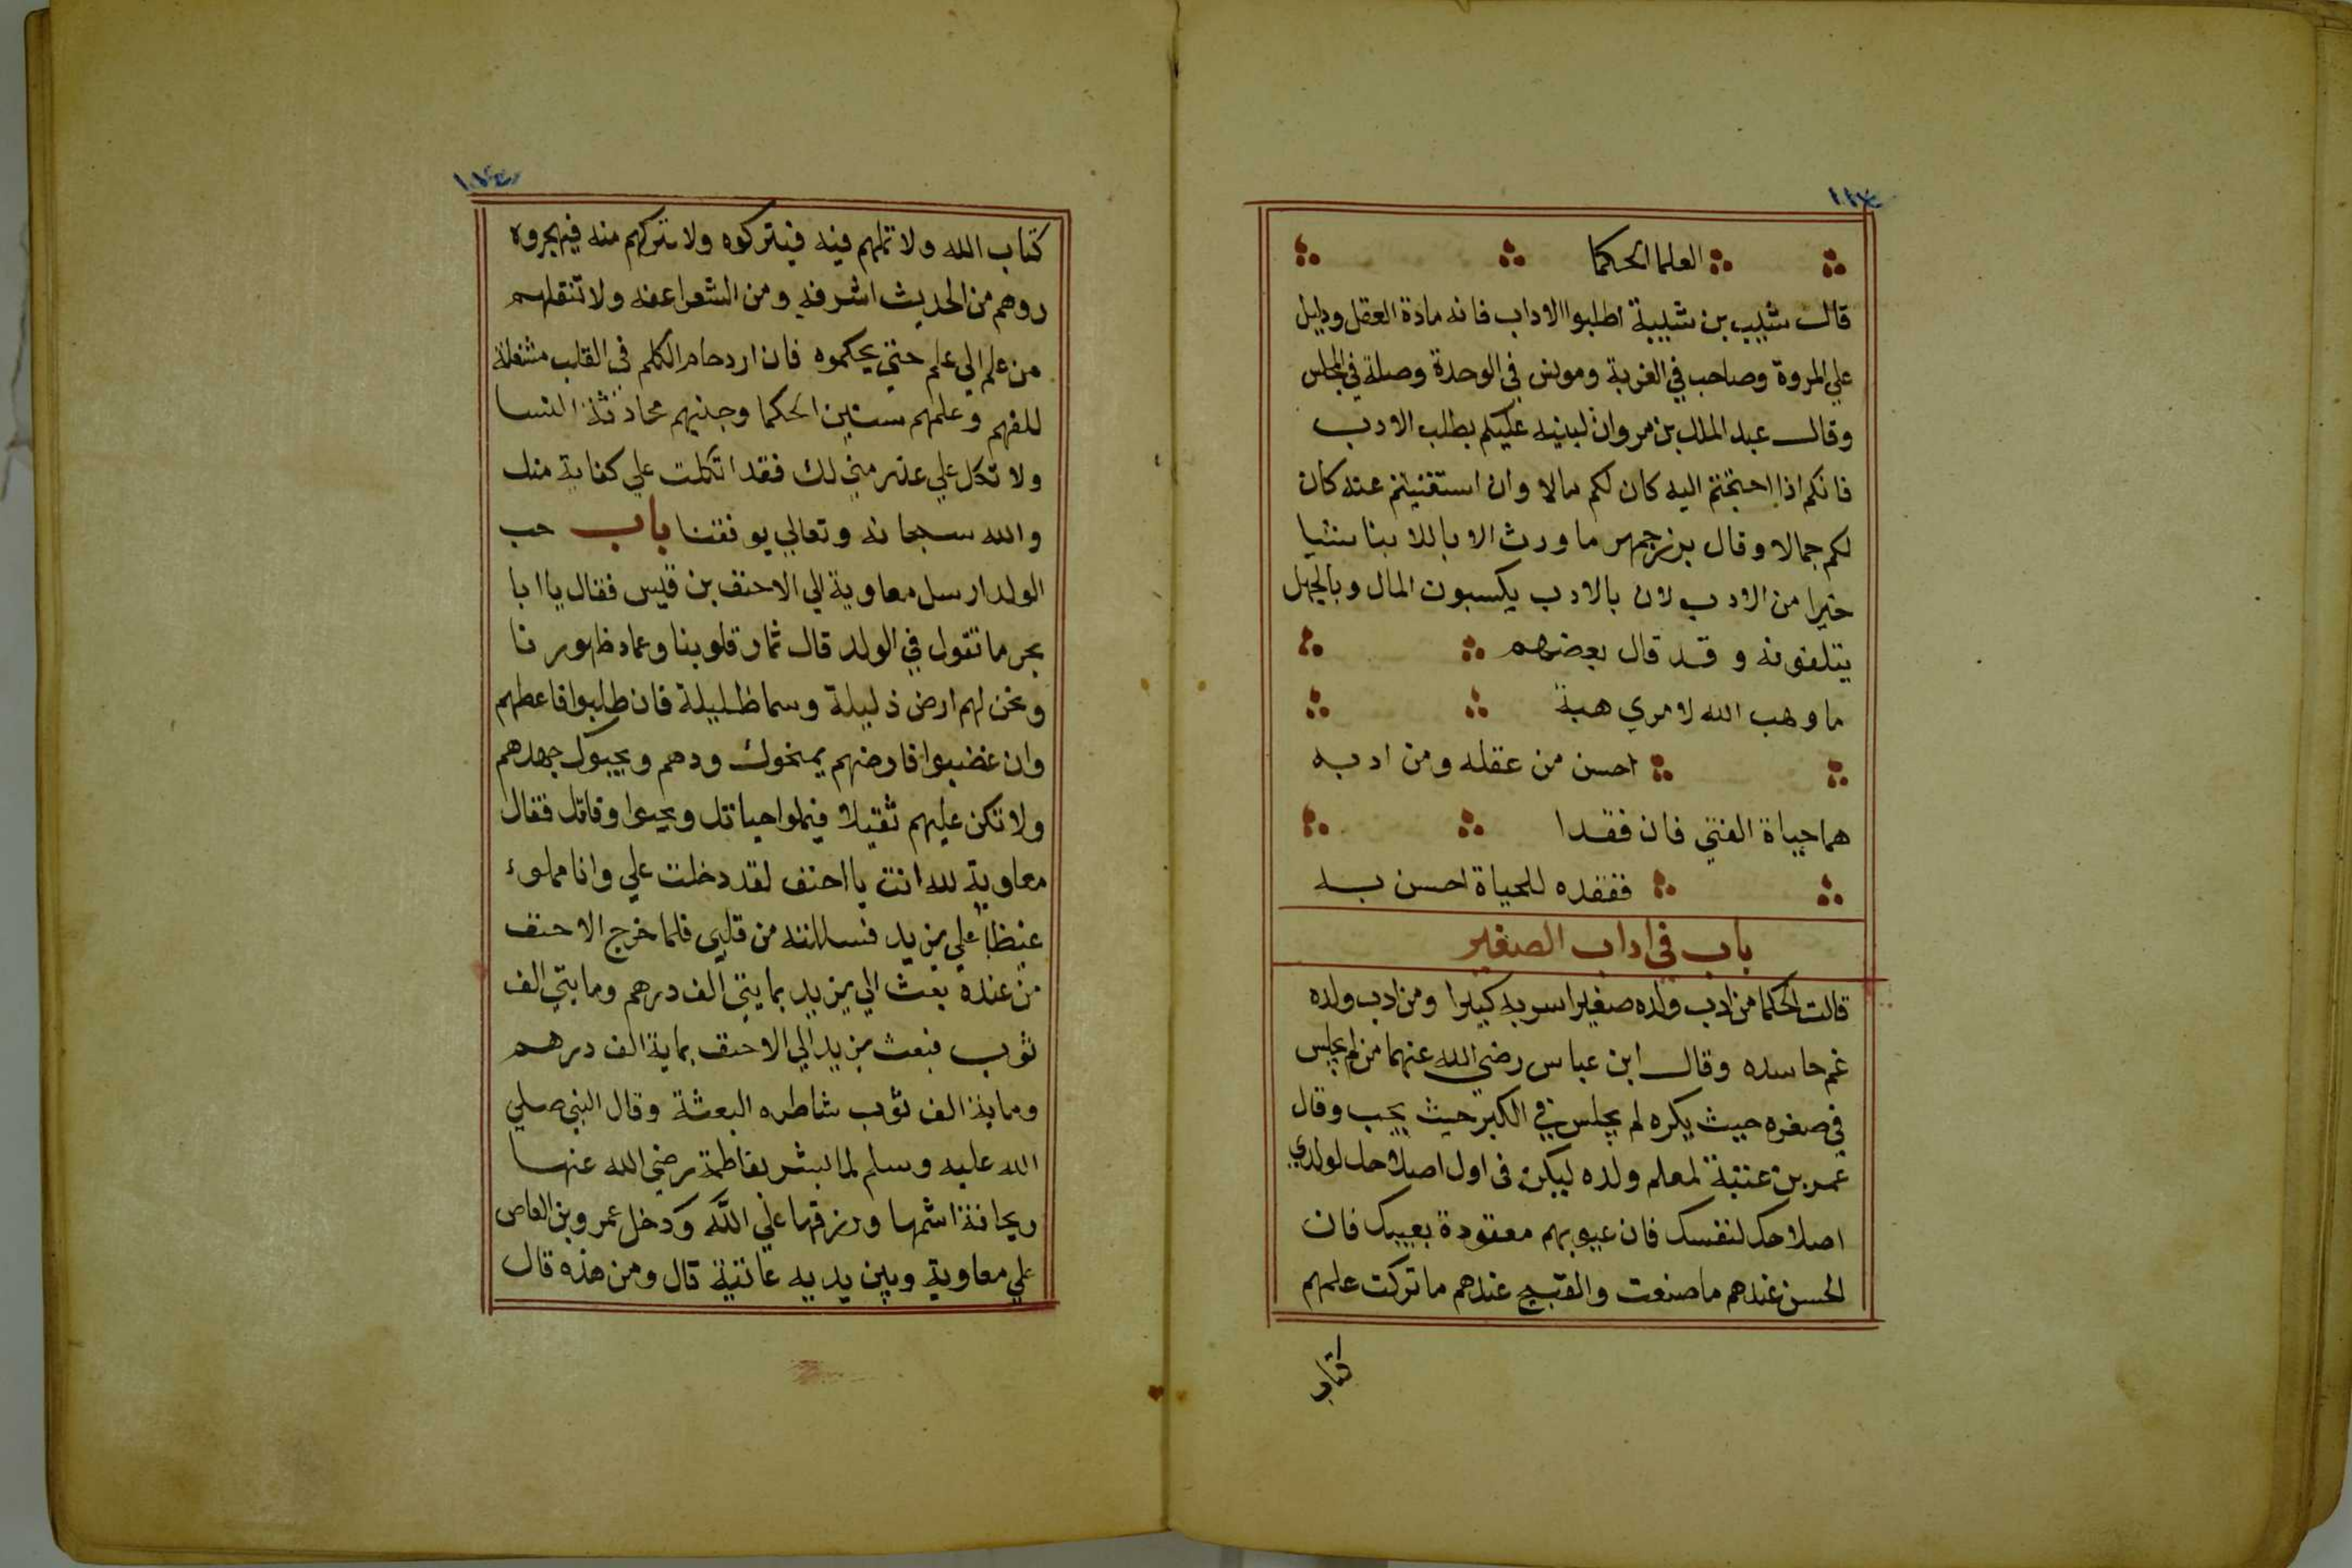 العلما الحكما
قالت شبيب بن شيبة اطلبوا الاداب فانه مادة العقل ودليل
علي المروة وصاحب في الغربة ومونس في الوحدة وصلة في المجلس
وقال عبد الملك بن مروان لبنيه عليكم بطلب الادب
فانكم اذا احتجتم اليه كان لكم مالا وان استغنيتم عنه كان
لكم جمالا وقال بزرجمهر ما ورث الابا للابنا شيا
خيرا من الادب لان بالادب يكسبون المال وبالجهل
يتلفونه وقد قال بعضهم
ما وهب الله لامري هبة
احسن من عقله ومن ادبه
هما حياة الفتي فان فقدا
ففقده للحياة احسن به
باب في اداب الصغير
قالت الحكما من ادب ولده صغيرا سر به كبيرا ومن ادب ولده
غم حاسده وقال ابن عباس رضي الله عنهما من لم يجلس
في صغره حيث يكره لم يجلس في الكبر حيث يحب وقال
عمر بن عتبة لمعلم ولده ليكن في اول اصلاحك لولدي
اصلاحك لنفسك فان عيوبهم معقودة بعيبك فان
الحسن عندهم ما صنعت والقبيح عندهم ما تركت علمهم
كتاب
كتاب الله ولا تملهم فيه فيتركوه ولا تتركهم منه فيهجروه
روهم من الحديث اشرفه ومن الشعر اعفه ولا تنقلهم
من علم الي علم حتي يحكموه فان ازدحام الكلم في القلب مشغلة
للفهم وعلمهم سنين الحكما وجنبهم محادثة النسا
ولا تكل علي عذر مني لك فقد اتكلت علي كفاية منك
والله سبحانه وتعالي يوفقنا باب حب
الولد ارسل معاوية الي الاحنف بن قيس فقال يا ابا
بحر ما تقول في الولد قال ثمار قلوبنا وعماد ظهورنا
ونحن لهم ارض ذليلة وسما ظليلة فان طلبوا فاعطهم
وان غضبوا فارضهم يمنحوك ودهم ويحبوك جهدهم
ولا تكن عليهم ثقيلا فيملوا حياتك ويحبوا وفاتك فقال
معاوية لله انت يا احنف لقد دخلت علي وانا مملوء
غيظا علي يزيد فسللته من قلبي فلما خرج الاحنف
من عنده بعث الي يزيد بمايتي الف درهم ومايتي الف
ثوب فبعث يزيد الي الاحنف بماية الف درهم
وماية الف ثوب شاطره البعثة وقال النبي صلي
الله عليه وسلم لما بشر بفاطمة رضي الله عنها
ريحانة اشمها ورزقها علي الله ودخل عمرو بن العاص
علي معاوية وبين يديه عاتية قال ومن هذه قال